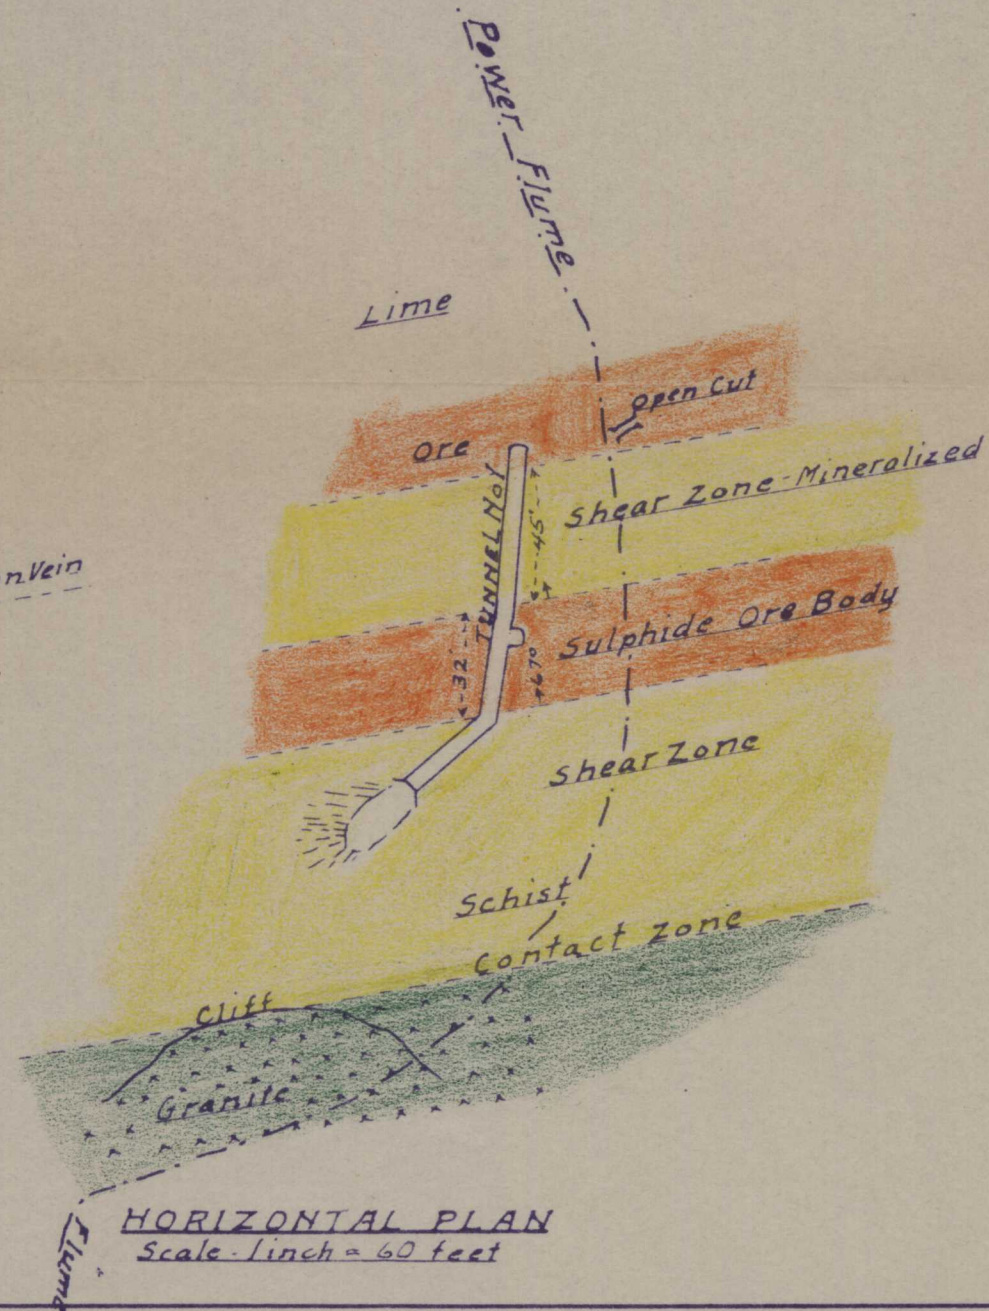 Power Flume
Lime
Open Cut
Ore
Shear Zone-Mineralized
TUNNEL No 1
45'
n Vein
Sulphide Ore Body
32'
Shear Zone
Schist
Contact Zone
Cliff
Granite
HORIZONTAL PLAN
Scale-1 inch = 60 feet
Flume